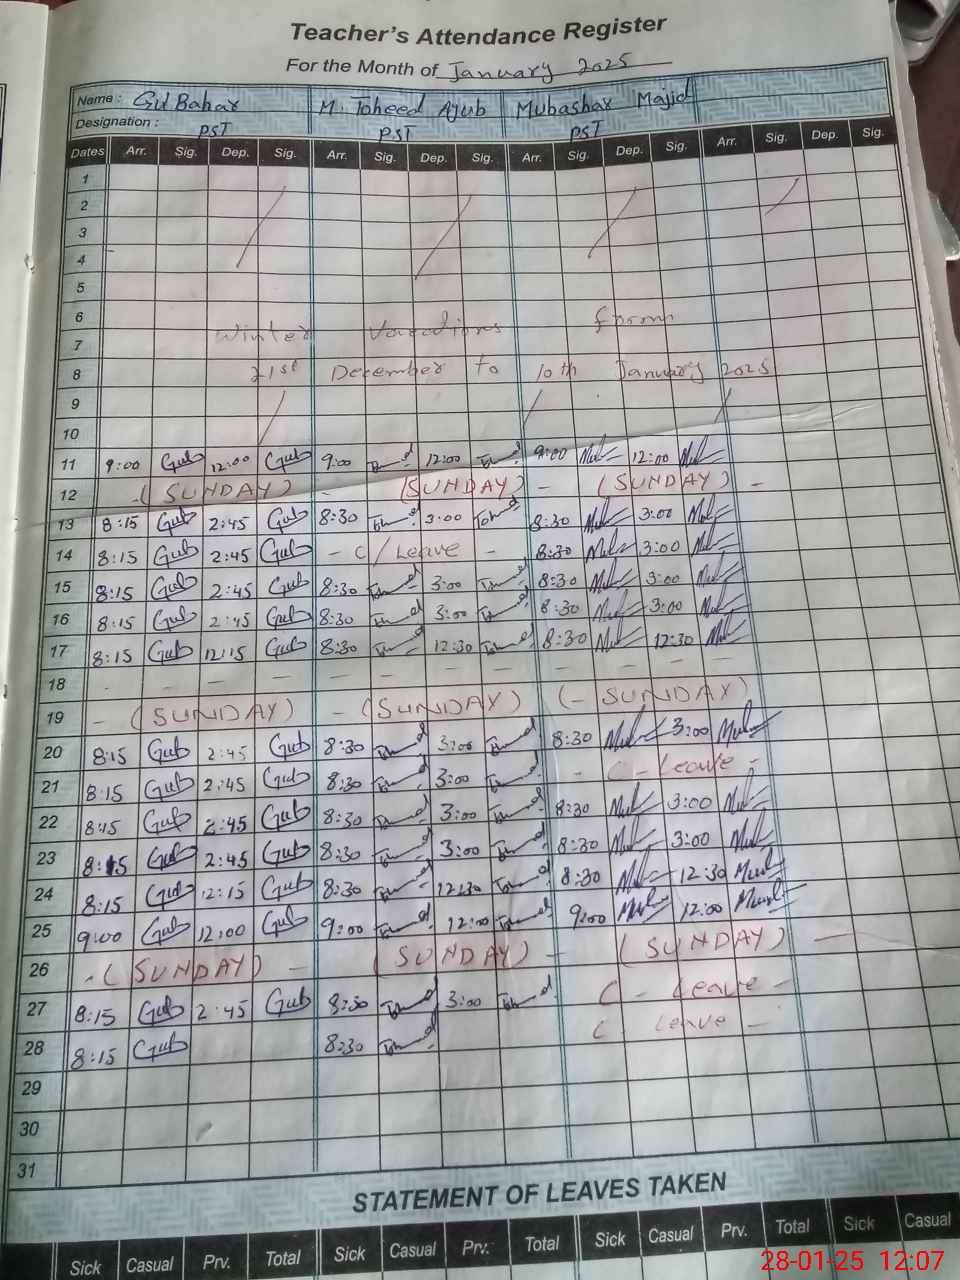 Teacher's Attendance Register
For the Month of January 2025
Name : Gul Bahar M. Toheed Ayub Mubashar Majid
Designation : PST PST PST
Dates Arr. Sig. Dep. Sig. Arr. Sig. Dep. Sig. Arr. Sig. Dep. Sig. Arr. Sig. Dep. Sig.
1
2
3
4
5
6
Winter Vacations from
7
8 21st December to 10th January 2025
9
10
11 9:00 Gub 12:00 Gub 9:00 12:00 9:00 12:00
12 - (SUNDAY) - (SUNDAY) - (SUNDAY) -
13 8:15 Gub 2:45 Gub 8:30 3:00 8:30 3:00
14 8:15 Gub 2:45 Gub - C/Leave - 8:30 3:00
15 8:15 Gub 2:45 Gub 8:30 3:00 8:30 3:00
16 8:15 Gub 2:45 Gub 8:30 3:00 8:30 3:00
17 8:15 Gub 12:15 Gub 8:30 12:30 8:30 12:30
18 - - - - - - - - - - - -
19 - (SUNDAY) - (SUNDAY) (- SUNDAY)
20 8:15 Gub 2:45 Gub 8:30 3:00 8:30 3:00
21 8:15 Gub 2:45 Gub 8:30 3:00 - C - Leave -
22 8:15 Gub 2:45 Gub 8:30 3:00 8:30 3:00
23 8:15 Gub 2:45 Gub 8:30 3:00 8:30 3:00
24 8:15 Gub 12:15 Gub 8:30 12:30 8:30 12:30
25 9:00 Gub 12:00 Gub 9:00 12:00 9:00 12:00
26 - (SUNDAY) - (SUNDAY) - (SUNDAY) -
27 8:15 Gub 2:45 Gub 8:30 3:00 C - Leave -
28 8:15 Gub 8:30 C - Leave -
29
30
31
STATEMENT OF LEAVES TAKEN
Sick Casual Prv. Total Sick Casual Prv. Total Sick Casual Prv. Total Sick Casual
28-01-25 12:07